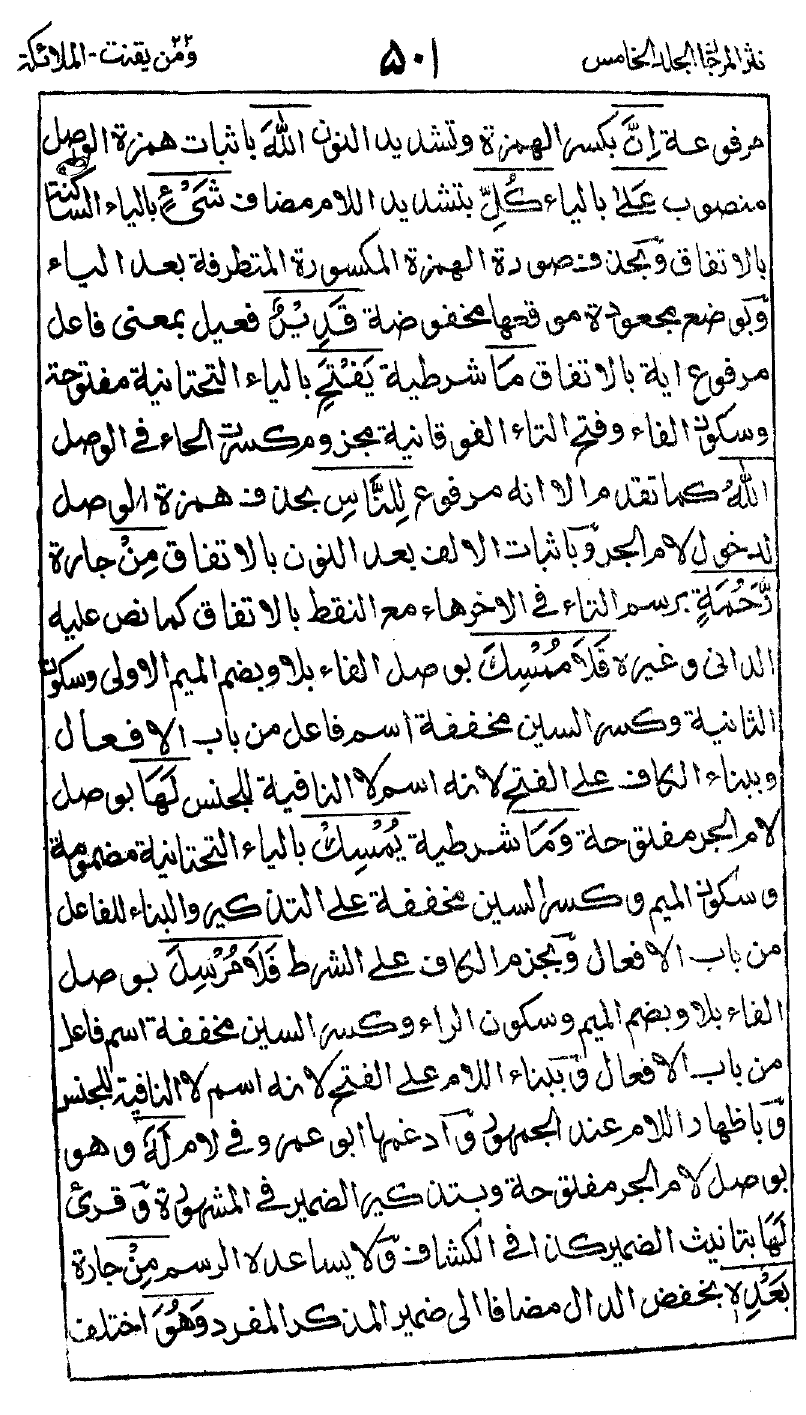 نثر المرجان المجلد الخامس ۵۰۱ ومن يقنت ۲۲ - الملائكة
مرفوعة إِنَّ بكسر الهمزة وتشديد النون اللّٰهَ باثبات همزة الوصل
منصوب عَلٰى بالياء كُلِّ بتشديد اللام مضاف شَيْءٍ بالياء الساكنة
بالاتفاق وَبحذف صورة الهمزة المكسورة المتطرفة بعد الياء
وَبوضع مجعودة موقعها مخفوضة قَدِيْرٌ فعيل بمعنى فاعل
مرفوع اية بالاتفاق مَا شرطية يَفْتَحِ بالياء التحتانية مفتوحة
وسكون الفاء وفتح التاء الفوقانية مجزوم كسرت الحاء في الوصل
اللّٰهُ كما تقدم الا انه مرفوع لِلنَّاسِ بحذف همزة الوصل
لدخول لام الجر وَباثبات الالف بعد النون بالاتفاق مِنْ جارة
رَّحْمَةٍ برسم التاء في الاخر هاء مع النقط بالاتفاق كما نص عليه
الداني وغيره فَلَا مُمْسِكَ بوصل الفاء بلا وبضم الميم الاولى وسكون
الثانية وكسر السين مخففة اسم فاعل من باب الافعال
وببناء الكاف على الفتح لانه اسم لا النافية للجنس لَهَا بوصل
لام الجر مفتوحة وَمَا شرطية يُمْسِكْ بالياء التحتانية مضمومة
وسكون الميم وكسر السين مخففة على التذكير والبناء للفاعل
من باب الافعال وَبجزم الكاف على الشرط فَلَا مُرْسِلَ بوصل
الفاء بلا وبضم الميم وسكون الراء وكسر السين مخففة اسم فاعل
من باب الافعال وَببناء اللام على الفتح لانه اسم لا النافية للجنس
وَباظهار اللام عند الجمهور وَادغمها ابو عمرو في لام لَهُ وهو
بوصل لام الجر مفتوحة وبتذكير الضمير في المشهورة وَقرئ
لَهَا بتانيث الضمير كذا في الكشاف وَلا يساعده الرسم مِنْ جارة
بَعْدِهٖ بخفض الدال مضافا الى ضمير المذكر المفرد وَهُوَ اختلف